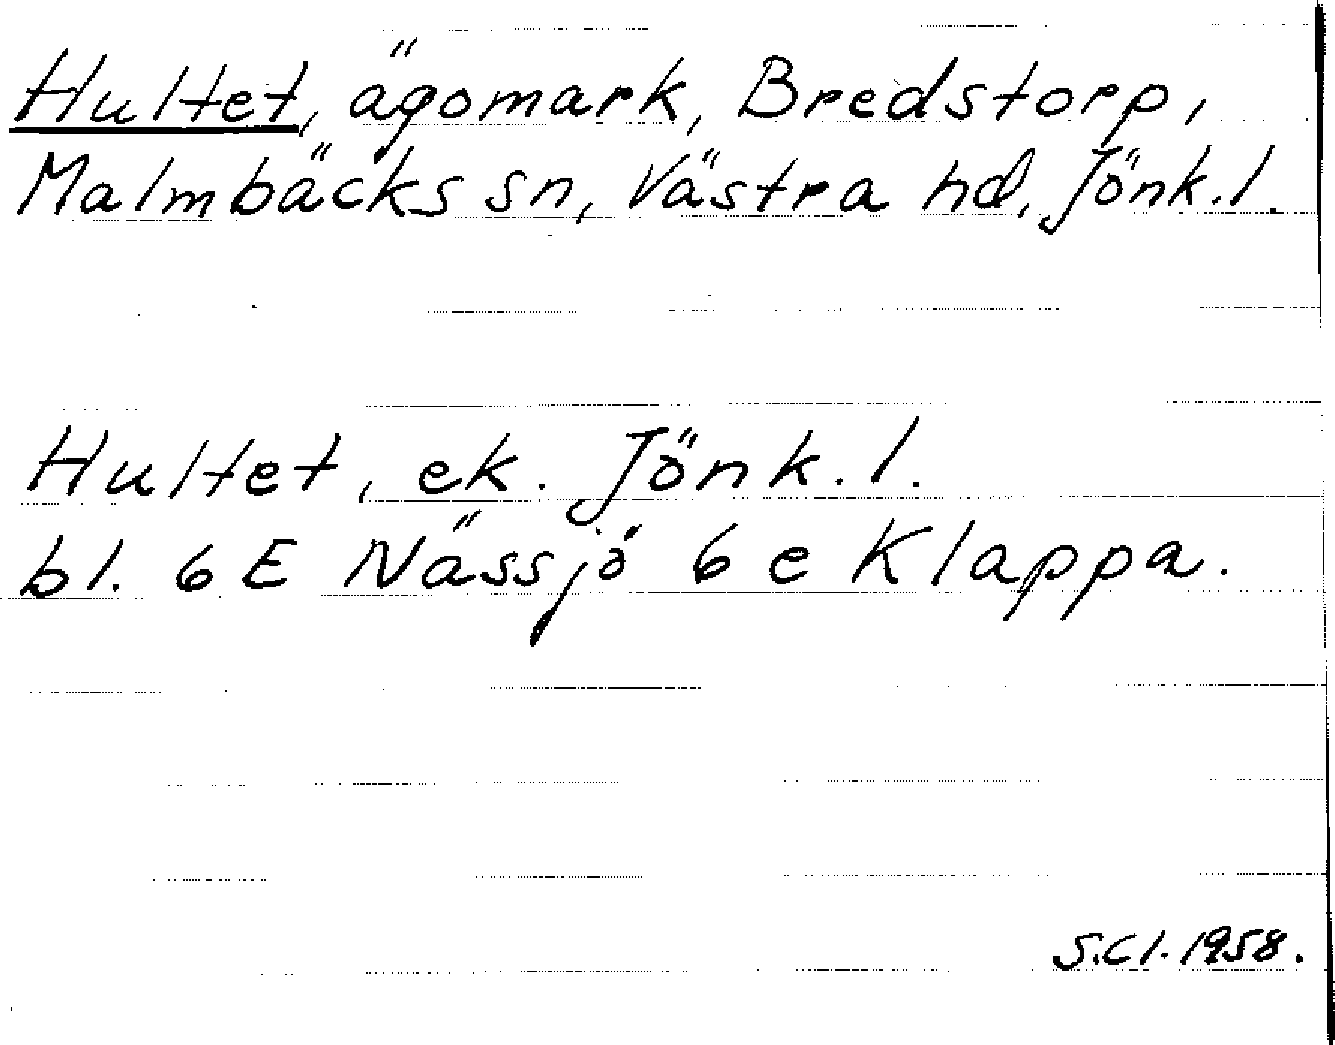 Hultet, ägomark, Bredstorp,
Malmbäcks sn, Västra hd, Jönk.l.
Hultet, ek. Jönk.l.
bl. 6E Nässjö 6e Klappa.
S.Cl. 1958.